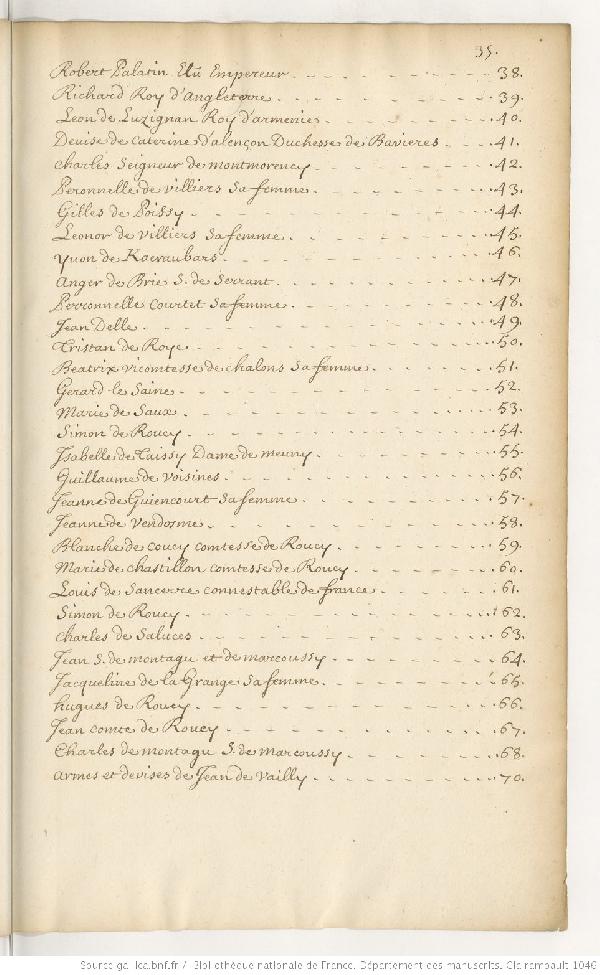 35.
Robert Palatin Elû Empereur. 38.
Richard Roy d'Angleterre. 39.
Leon de Luzignan Roy d'armenie. 40.
Devise de Caterine d'alençon Duchesse de Bavieres. 41.
Charles Seigneur de montmorency. 42.
Peronnelle de villiers sa femme. 43.
Gilles de Poissy. 44.
Leonor de villiers sa femme. 45.
Yuon de Kaeraubars. 46.
Anger de Brie S. de Serrant. 47.
Perronnelle Courtet sa femme. 48.
Jean Delle. 49.
Tristan de Roye. 50.
Beatrix vicomtesse de chalons sa femme. 51.
Gerard le Saine. 52.
Marie de Saux. 53.
Simon de Roucy. 54.
Isabelle de Taissy Dame de meuny. 55.
Guillaume de voisines. 56.
Jeanne de Guiencourt sa femme. 57.
Jeanne de vendosme. 58.
Blanche de coucy comtesse de Roucy. 59.
Marie de chastillon comtesse de Roucy. 60.
Louis de Sancerre connestable de france. 61.
Simon de Roucy. 62.
Charles de Saluces. 63.
Jean S. de montagu et de marcoussy. 64.
Jacqueline de la Grange sa femme. 65.
hugues de Roucy. 66.
Jean comte de Roucy. 67.
Charles de montagu S. de marcoussy. 68.
armes et devises de Jean de vailly. 70.
Source gallica.bnf.fr / Bibliothèque nationale de France. Département des manuscrits. Clairembault 1046